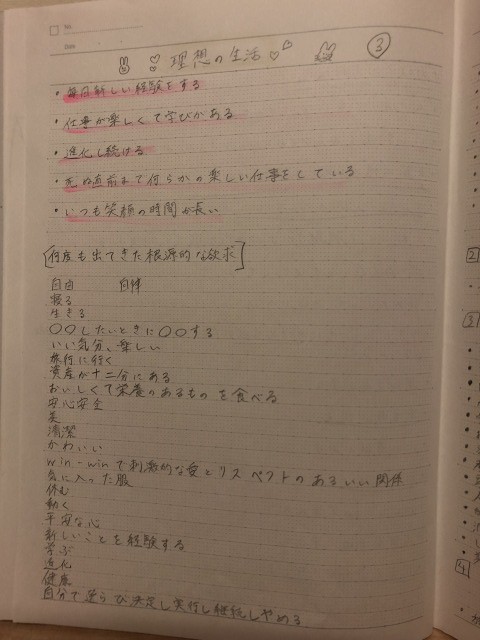 No.
Date
理想の生活 ③
・毎日新しい経験をする
・仕事が楽しくて学びがある
・進化し続ける
・死ぬ直前まで何らかの楽しい仕事をしている
・いつも笑顔の時間が長い
[何度も出てきた根源的な欲求]
自由 自律
寝る
生きる
〇〇したいときに〇〇する
いい気分、楽しい
旅行に行く
資産が十二分にある
おいしくて栄養のあるものを食べる
安心安全
美
清潔
かわいい
win-winで刺激的な愛とリスペクトのあるいい関係
気に入った服
休む
動く
平安な心
新しいことを経験する
学ぶ
進化
健康
自分で選らび決定し実行し継続しやめる
2
3
4